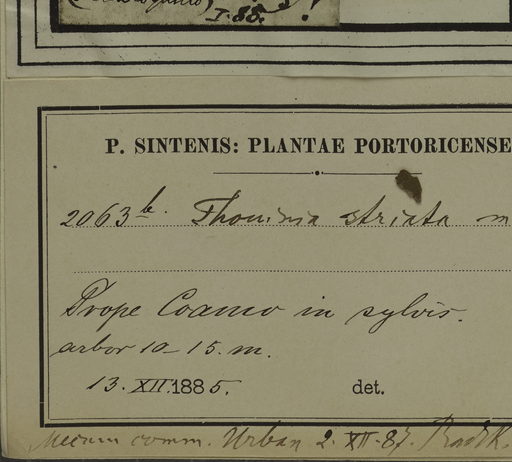 I. 88.
P. SINTENIS: PLANTAE PORTORICENSE
2063b. Thouinia striata
Prope Coamo in sylvis.
arbor 10-15. m.
13. XII. 1885. det.
Mecum comm. Urban 2. XII. 87. Radlk.